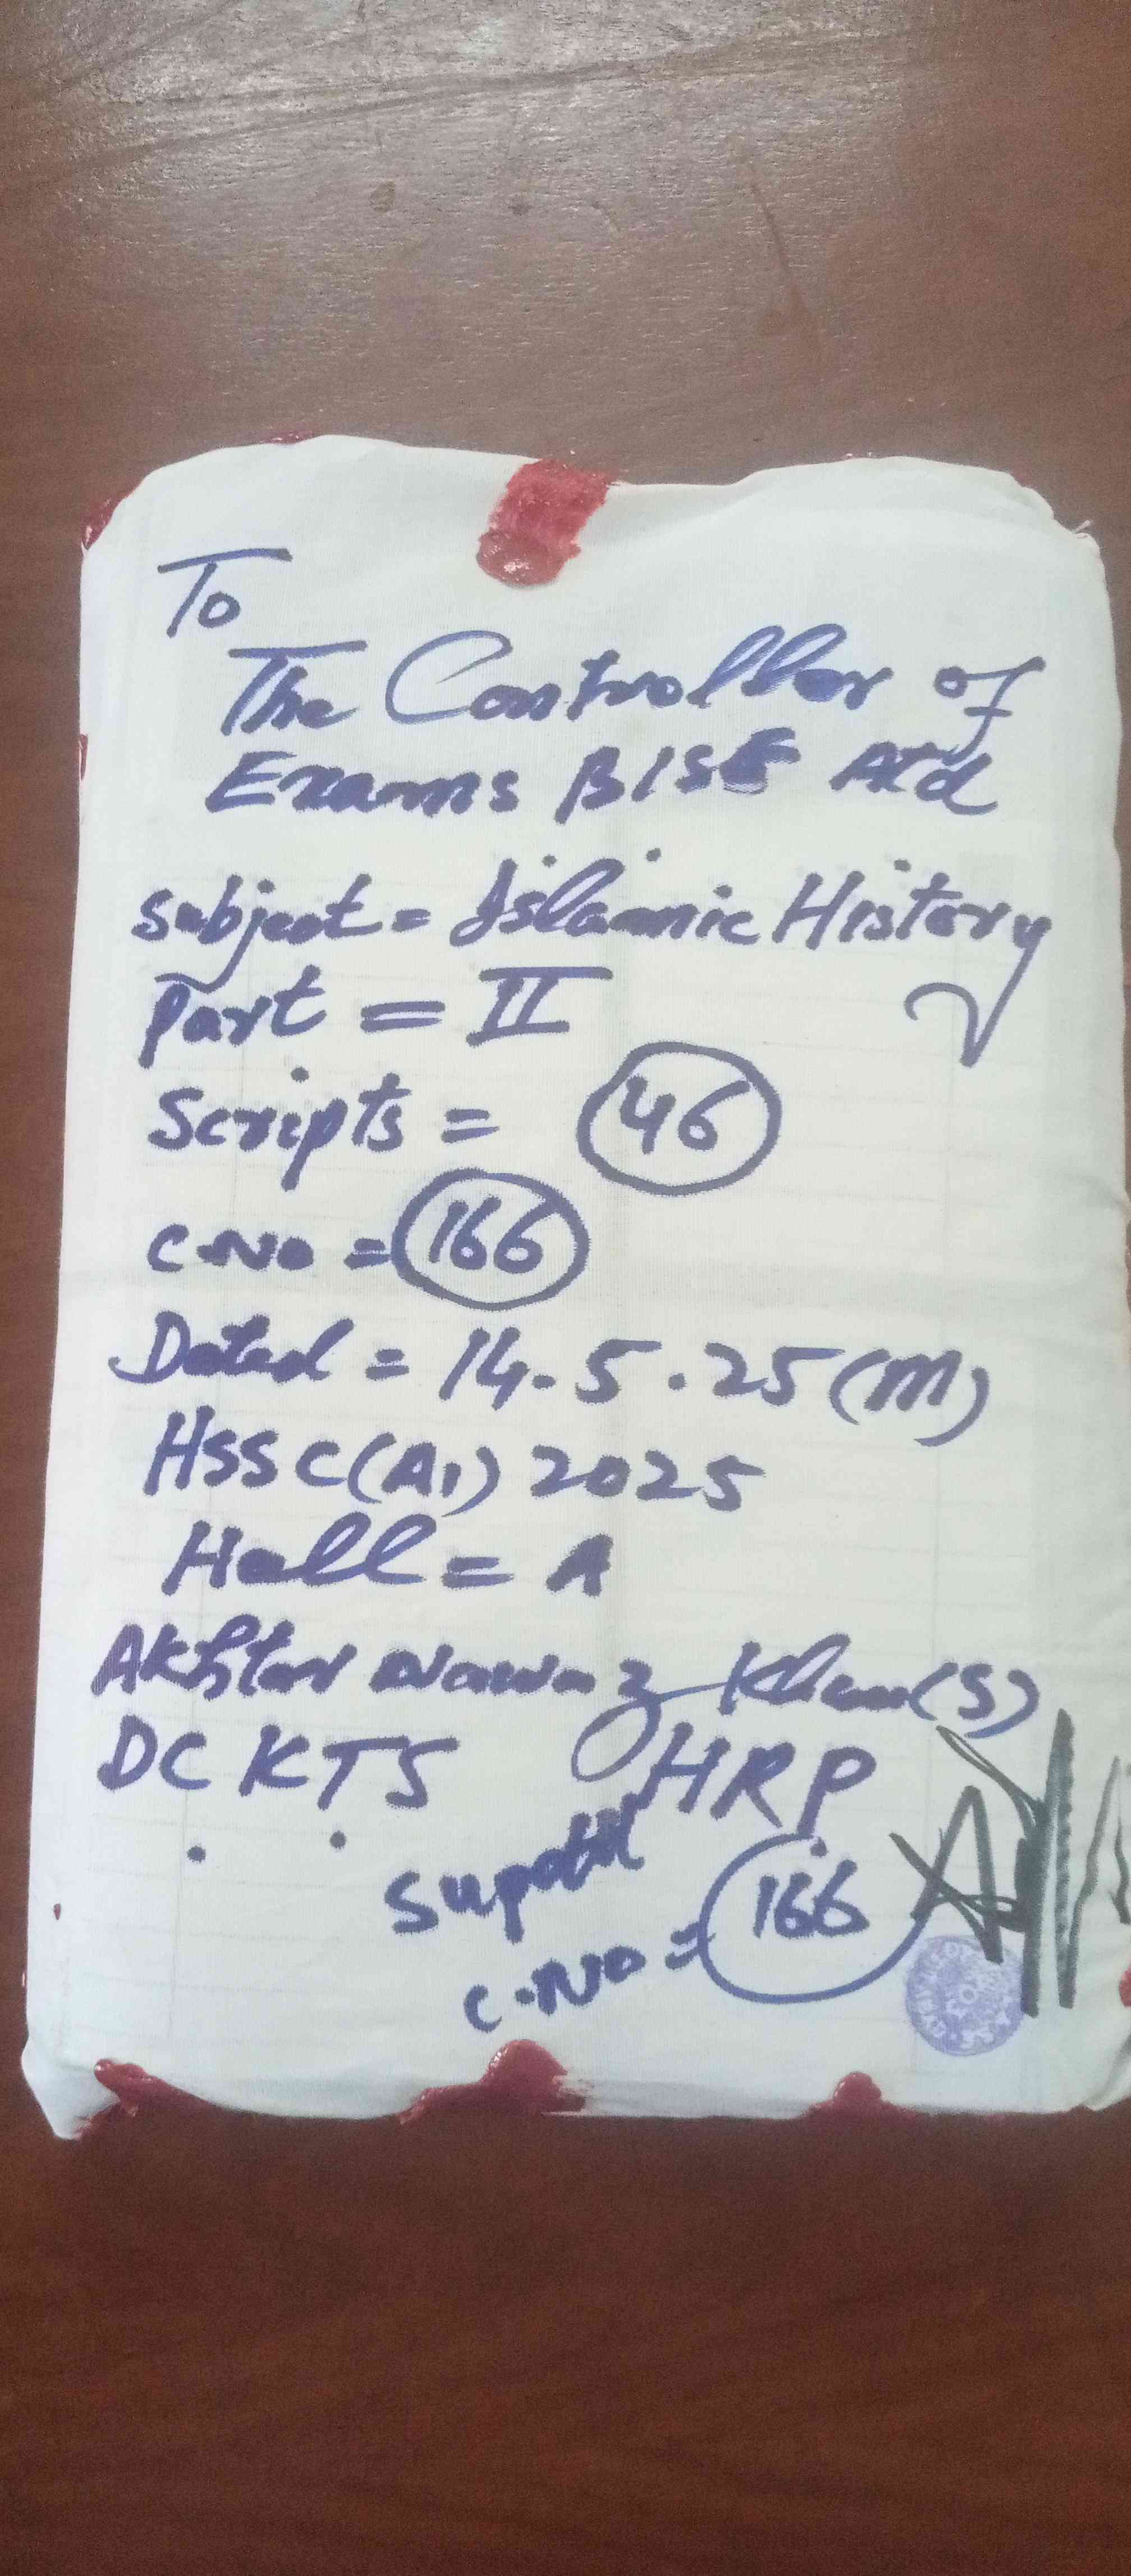 To
The Controller of
Exams BISE Atd
Subject = Islamic History
Part = II
Scripts = 46
C.No = 166
Dated = 14.5.25 (M)
HSSC(A1) 2025
Hall = A
Akhtar Nawaz Khan(S)
DC KTS HRP
Supdtt
C.No = 166